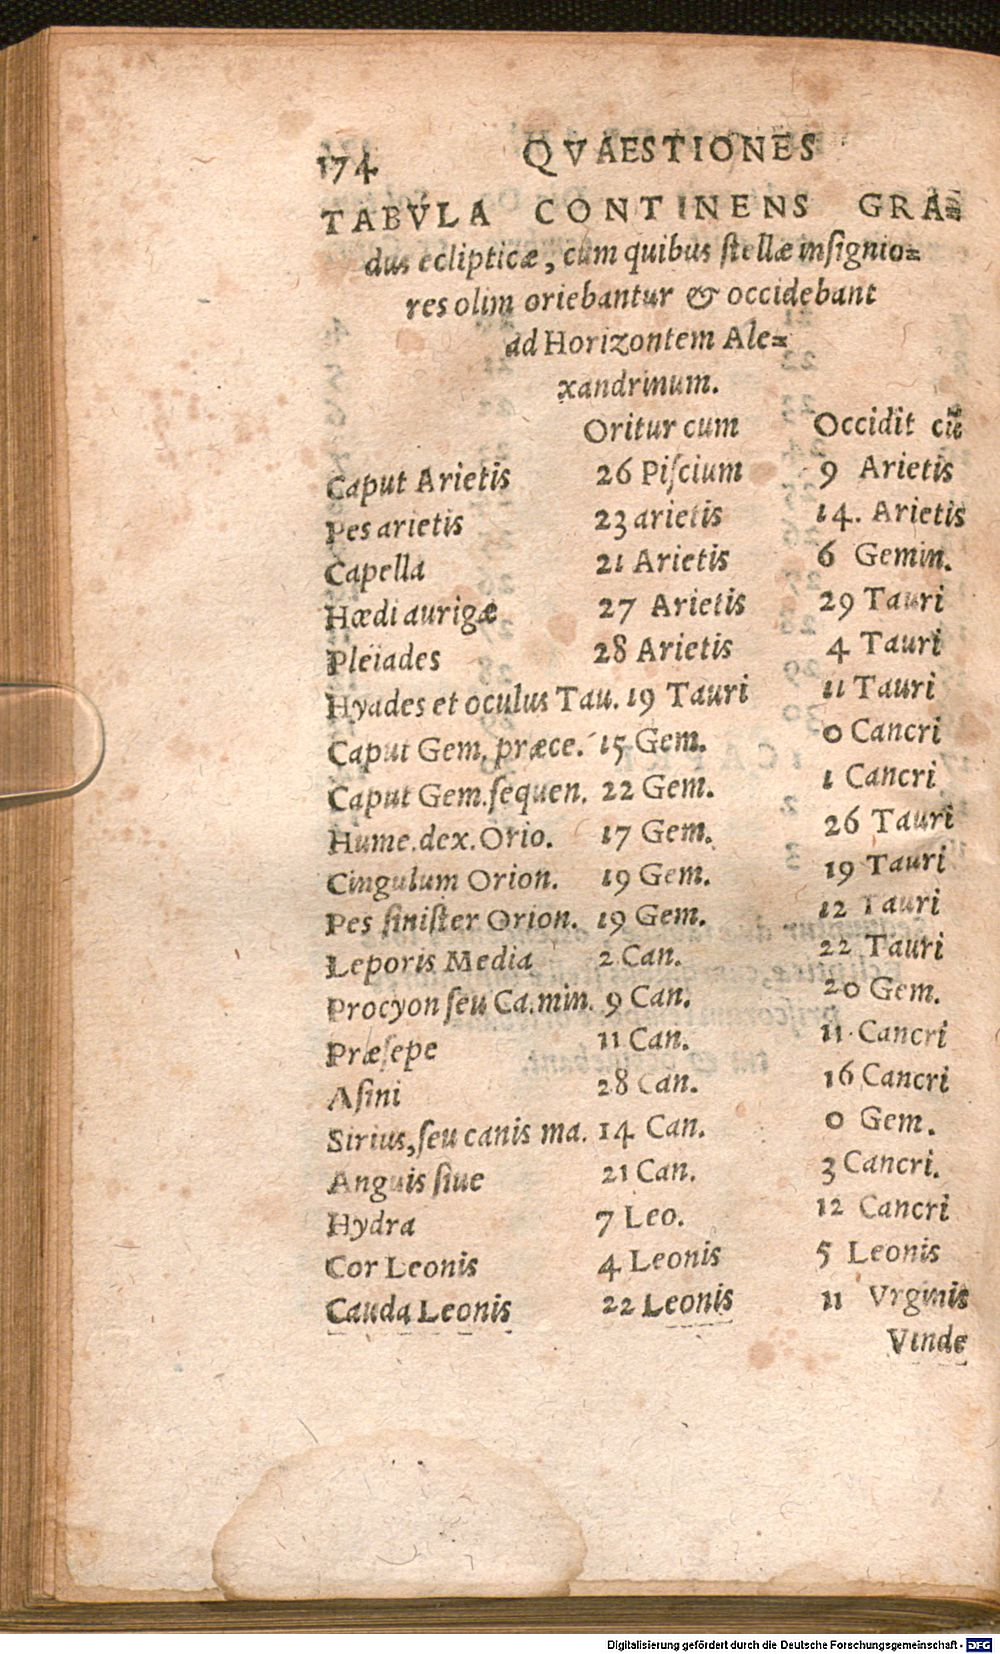 174 QVAESTIONES
TABVLA CONTINENS GRA=
dus eclipticæ, cum quibus stellæ insignio=
res olim oriebantur & occidebant
ad Horizontem Ale=
xandrinum.
Oritur cum Occidit cū
Caput Arietis 26 Piscium 9 Arietis
Pes arietis 23 arietis 14. Arietis
Capella 21 Arietis 6 Gemin.
Hœdi aurigæ 27 Arietis 29 Tauri
Pleiades 28 Arietis 4 Tauri
Hyades et oculus Tau. 19 Tauri 11 Tauri
Caput Gem. præce. 15 Gem. 0 Cancri
Caput Gem. sequen. 22 Gem. 1 Cancri
Hume. dex. Orio. 17 Gem. 26 Tauri
Cingulum Orion. 19 Gem. 19 Tauri
Pes sinister Orion. 19 Gem. 12 Tauri
Leporis Media 2 Can. 22 Tauri
Procyon seu Ca. min. 9 Can. 20 Gem.
Præsepe 11 Can. 11 Cancri
Asini 28 Can. 16 Cancri
Sirius, seu canis ma. 14 Can. 0 Gem.
Anguis siue 21 Can. 3 Cancri.
Hydra 7 Leo. 12 Cancri
Cor Leonis 4 Leonis 5 Leonis
Cauda Leonis 22 Leonis 11 Vrginis
Vinde
Digitalisierung gefördert durch die Deutsche Forschungsgemeinschaft - DFG